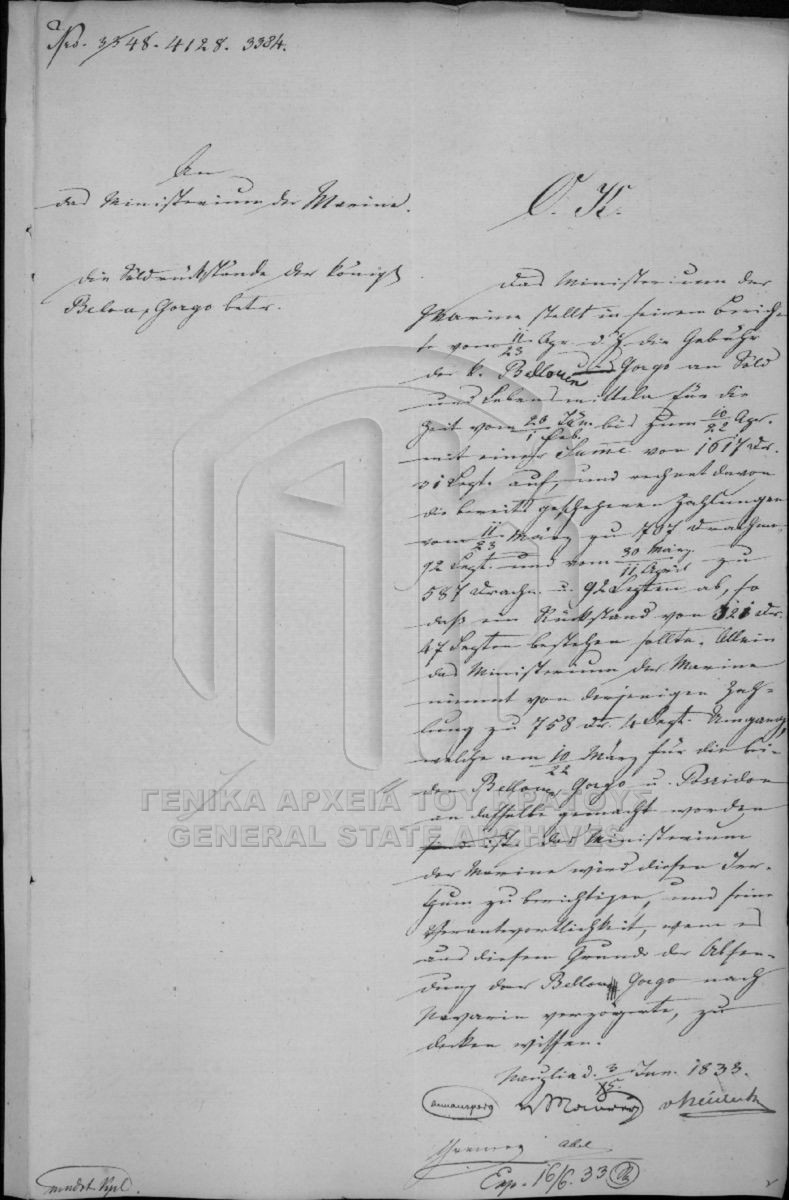 Nro. 3548. 4128. 3334.
An
das Ministerium der Marine.
die Soldrückstände der königl
Belona, Gorgo betr.
O. K.
Das Ministerium der
Marine stellt in seinem Berich-
te vom 11/23 Apr. d. J. die Gebühr
der k. Bellona Gorgo an Sold
und Lebensmitteln für die
Zeit vom 20 Jän./1 Feb. bis zum 10/22 Apr.
mit einer Summe von 1617 Dr.
31 Lept. auf, und rechnet davon
die bereits geschehenen Zahlungen
vom 11/23 März zu 707 Drachm.
92 Lept. und vom 30 März/11 April zu
587 Drachm. u. 92 Lepten ab, so
daß ein Rückstand von 321 Dr.
47 Lepten bestehen sollte. Allein
das Ministerium der Marine
nimmt von derjenigen Zah-
lung zu 758 Dr. 4 Lept. Umgang,
welche am 10/22 März für die bei-
den Bellona Gorgo u. Poseidon
an dasselbe gemacht worden
ist. Das Ministerium
der Marine wird diesen Irr-
thum zu berichtigen, und seine
Verantwortlichkeit, wenn es
aus diesem Grunde die Absen-
dung der Bellona Gorgo nach
Navarin verzögerte, zu
decken wissen.
Nauplia d. 3/15 Jun. 1833.
Armansperg v Maurer v Heideck
Abel
Exp. 16/6. 33
ΓΕΝΙΚΑ ΑΡΧΕΙΑ ΤΟΥ ΚΡΑΤΟΥΣ
GENERAL STATE ARCHIVES